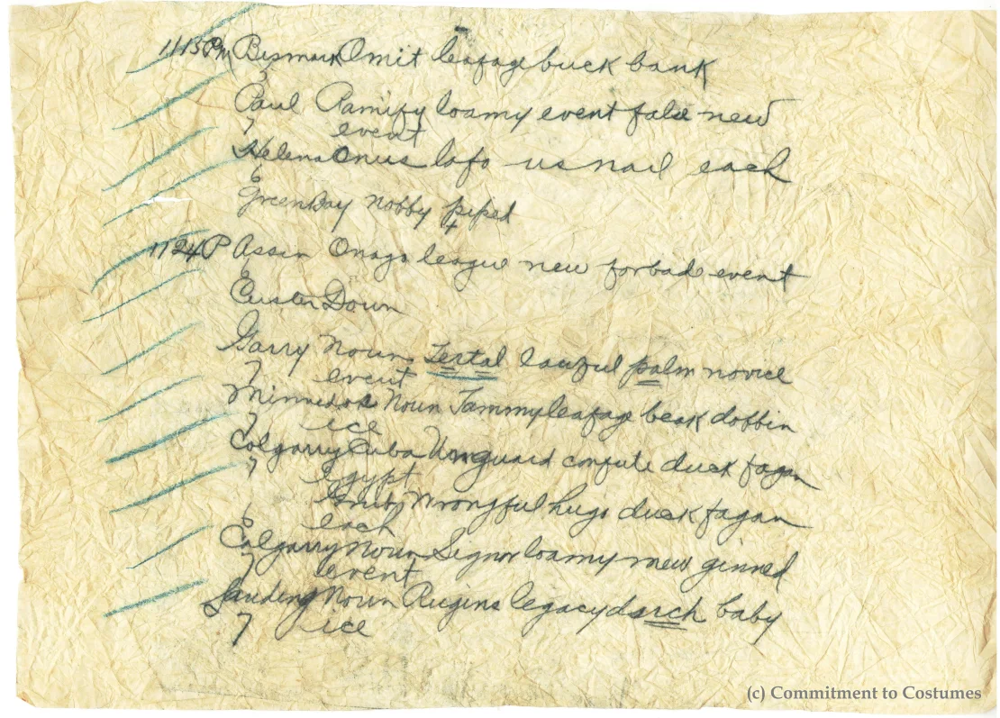 1113PM Bismark Omit leafage buck bank
Paul Ramify loamy event false new
7 event
Helena Onus lofo us nail each
6
GreenBay nobby piped
1124P Assin Onago league new forbad event
Custer Down
Garry Noun Tertal lawful palm novice
7 event
Minnedos Noun Jammy leafage beak dobbin
7 ice
Calgarry Cuba Unguard confute duck fagan
7 Egypt
Wrongful hugo duck fagan
6 each
Calgarry Noun Signor loamy mew ginned
7 event
Landing Noun Rugins legacy duch baby
7 ice
(c) Commitment to Costumes